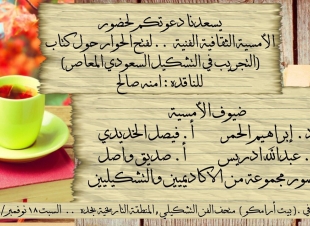 يسعدنا دعوتكم لحضور
الأمسية الثقافية الفنية .. لفتح الحوار حول كتاب
(التجريب في التشكيل السعودي المعاصر)
للناقدة : امنه صالح
ضيوف الأمسية
د. إبراهيم الحمر    أ. فيصل الخديدي
عبدالله ادريس    أ. صديق واصل
مجموعة من الأكاديميين والتشكيليين
(بيت أرامكو) متحف الفن التشكيلي المنطقة التاريخية بجده .. السبت ١٨ نوفمبر